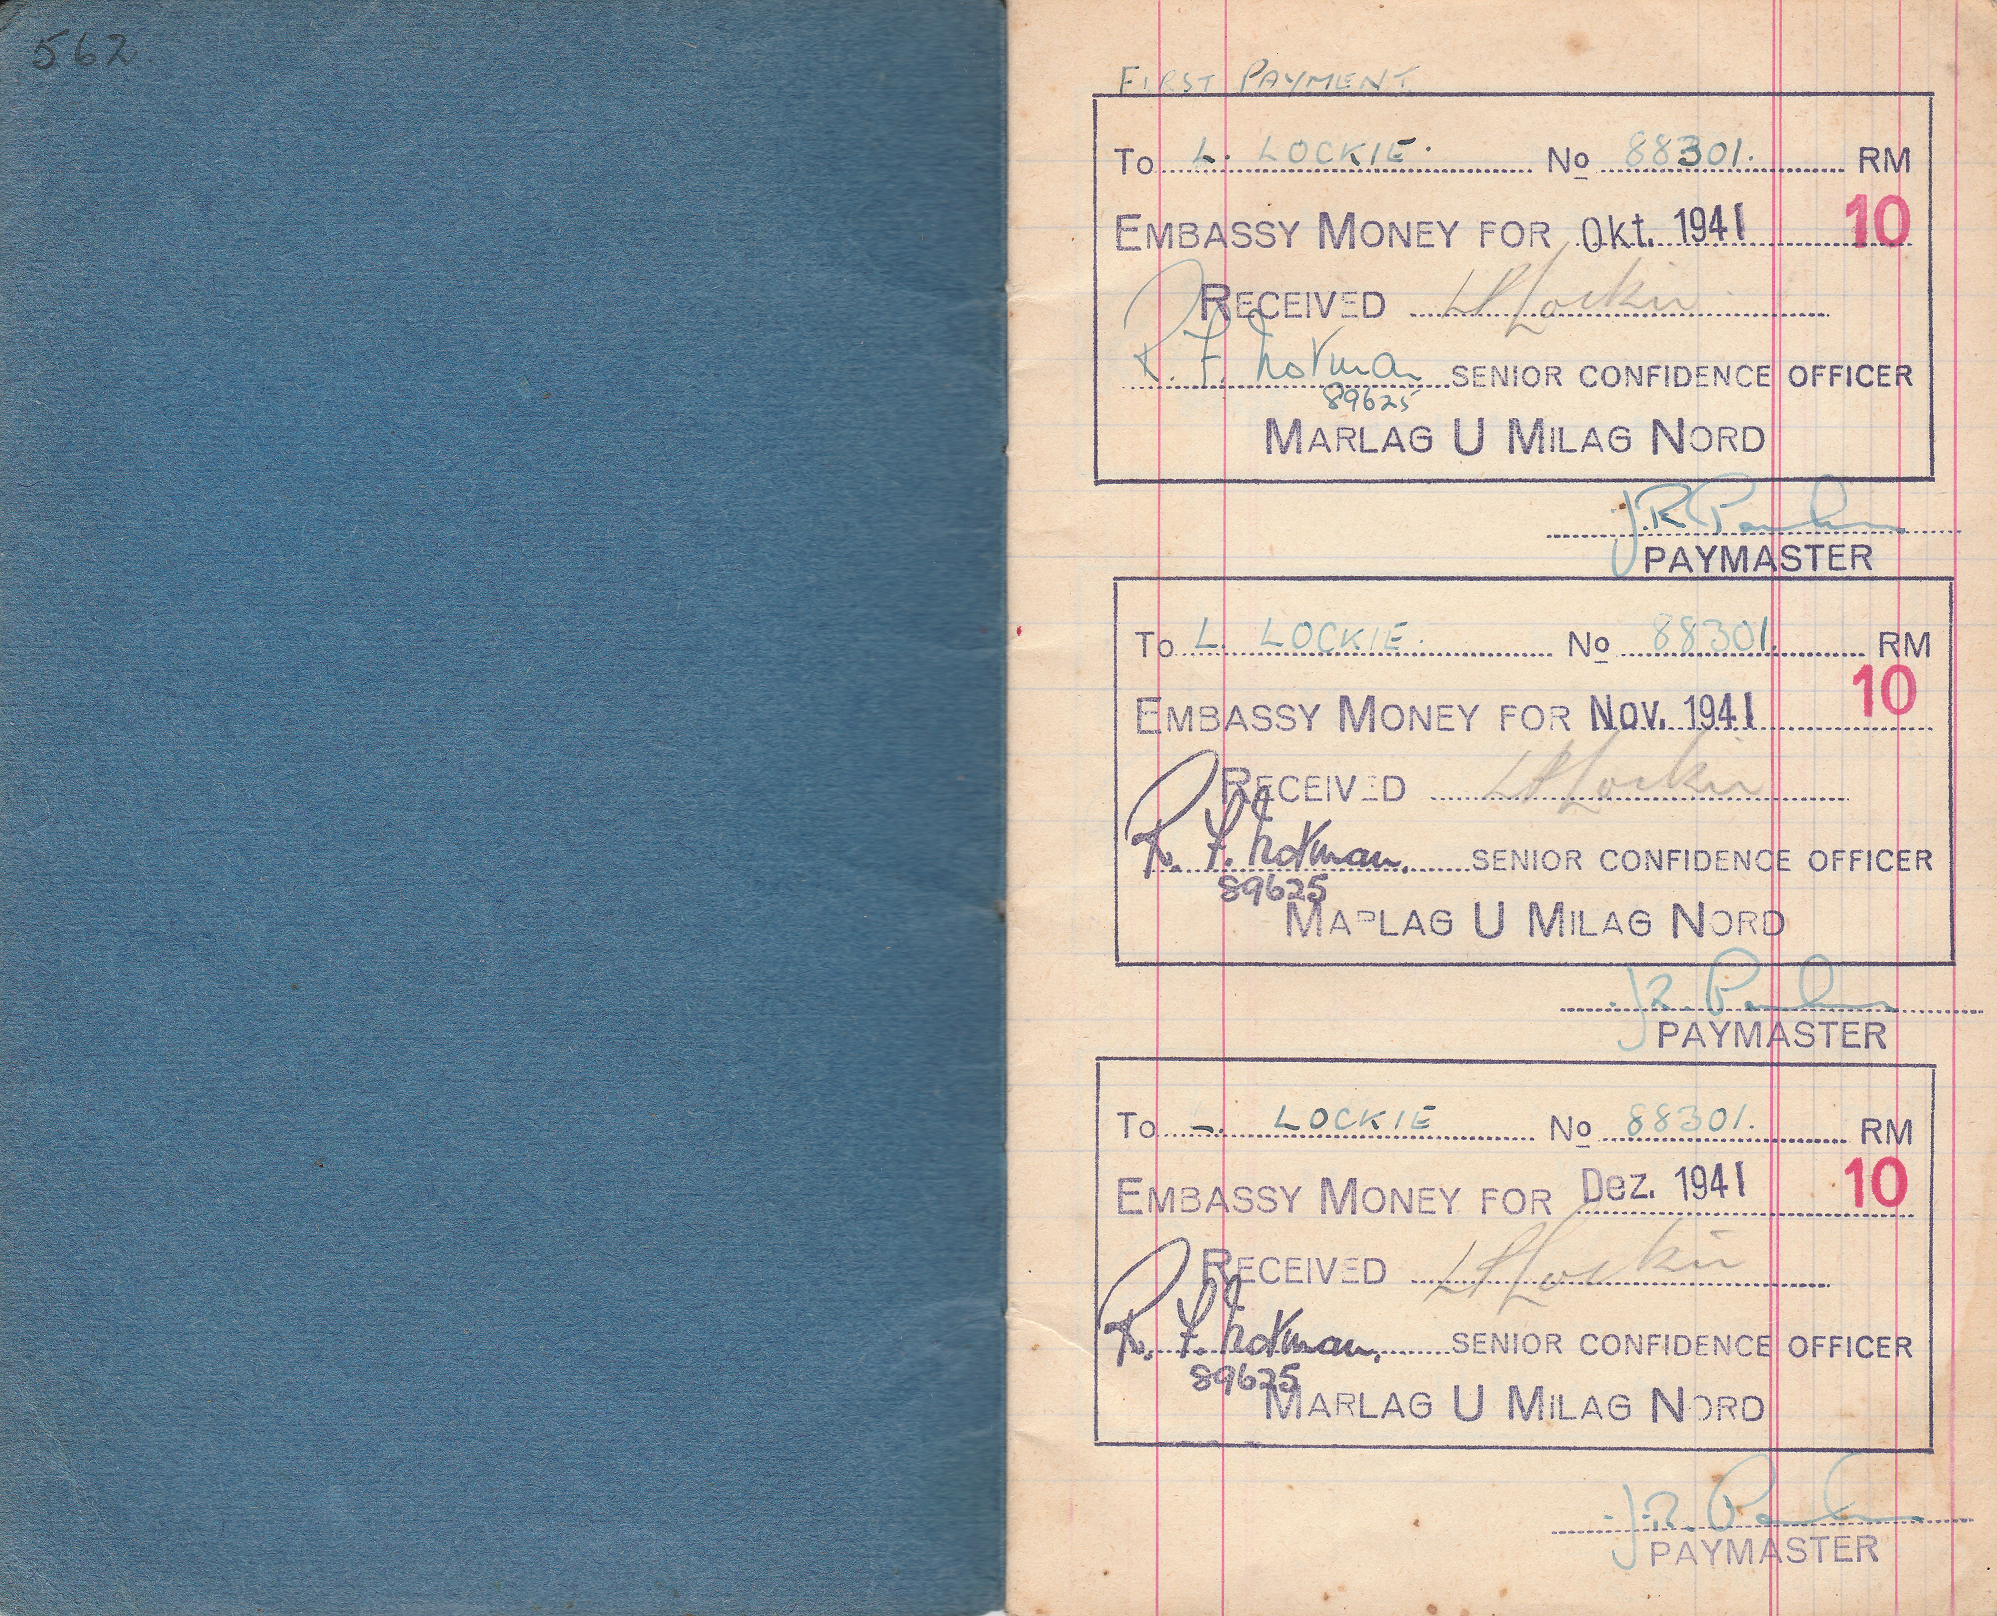 562.
FIRST PAYMENT
To L. LOCKIE. No 88301. RM
EMBASSY MONEY FOR Okt. 1941 10
RECEIVED Lockie
R. F. Notman SENIOR CONFIDENCE OFFICER
89625
MARLAG U MILAG NORD
J.R.
PAYMASTER
To L. LOCKIE. No 88301. RM
EMBASSY MONEY FOR Nov. 1941 10
RECEIVED Lockie
R. F. Notman. SENIOR CONFIDENCE OFFICER
89625
MARLAG U MILAG NORD
J.R.
PAYMASTER
To L. LOCKIE No 88301. RM
EMBASSY MONEY FOR Dez. 1941 10
RECEIVED Lockie
R. F. Notman. SENIOR CONFIDENCE OFFICER
89625
MARLAG U MILAG NORD
J.R.
PAYMASTER